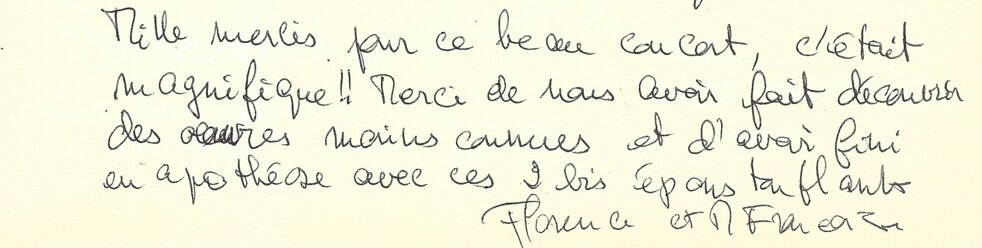 Mille mercis pour ce beau concert, c'était
magnifique !! Merci de nous avoir fait découvrir
des oeuvres moins connues et d'avoir fini
en apothéose avec ces 2 bis époustouflants
Florence et